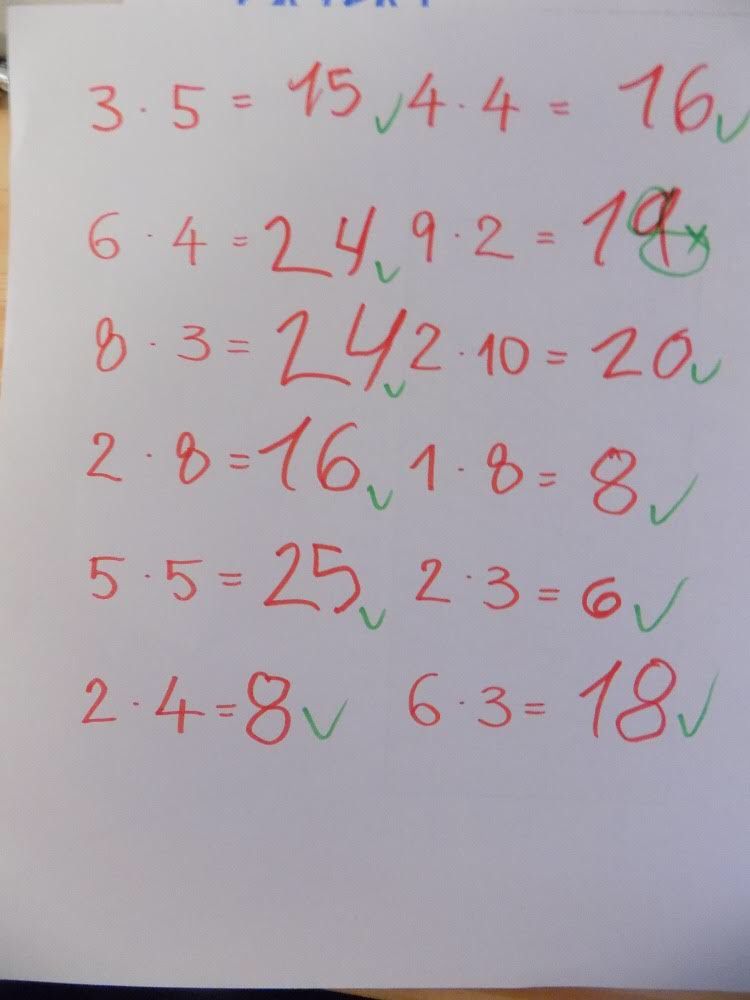 3 · 5 = 15 ✓ 4 · 4 = 16 ✓
6 · 4 = 24 ✓ 9 · 2 = 19 ×
8 · 3 = 24 ✓ 2 · 10 = 20 ✓
2 · 8 = 16 ✓ 1 · 8 = 8 ✓
5 · 5 = 25 ✓ 2 · 3 = 6 ✓
2 · 4 = 8 ✓ 6 · 3 = 18 ✓